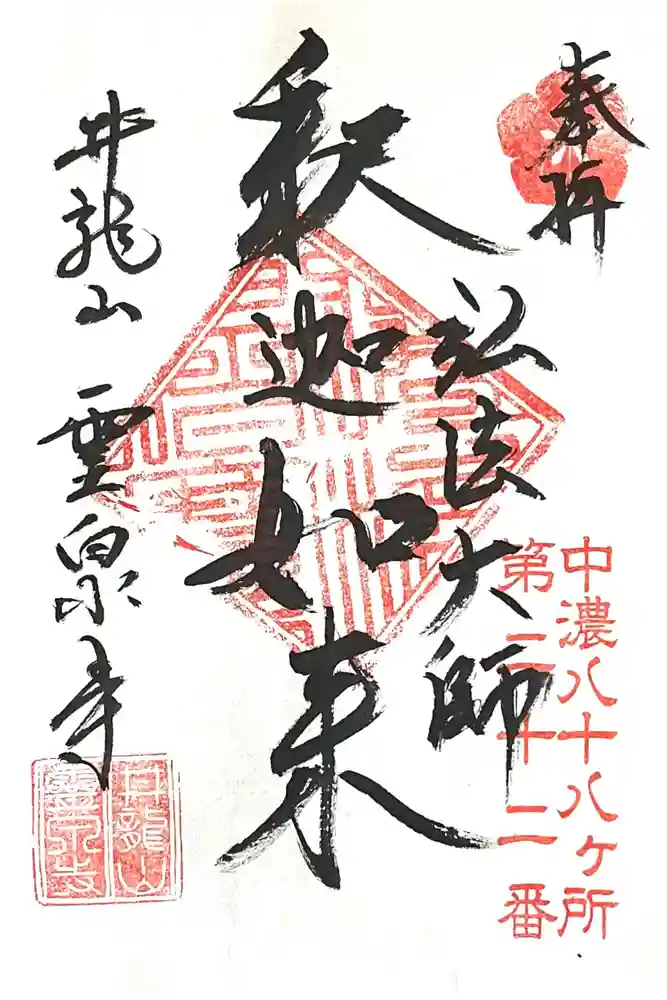 奉拝
中濃八十八ヶ所
第二十二番
弘法大師
釈迦如来
井龍山 霊泉寺
井龍山
霊泉寺